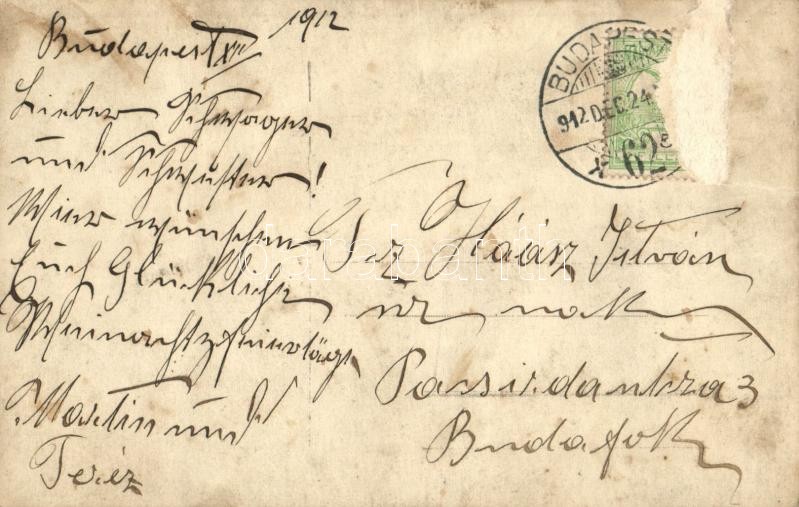 Budapest XII/ 1912
Lieber Schwager
und Schwester!
Wier wünschen
Euch Glückliche
Weinachtzfeiertäge
Martin und
Teréz
BUDAPEST
912 DEC. 24.
62
Tz Haász István
úr nak
Budafok
darabanth